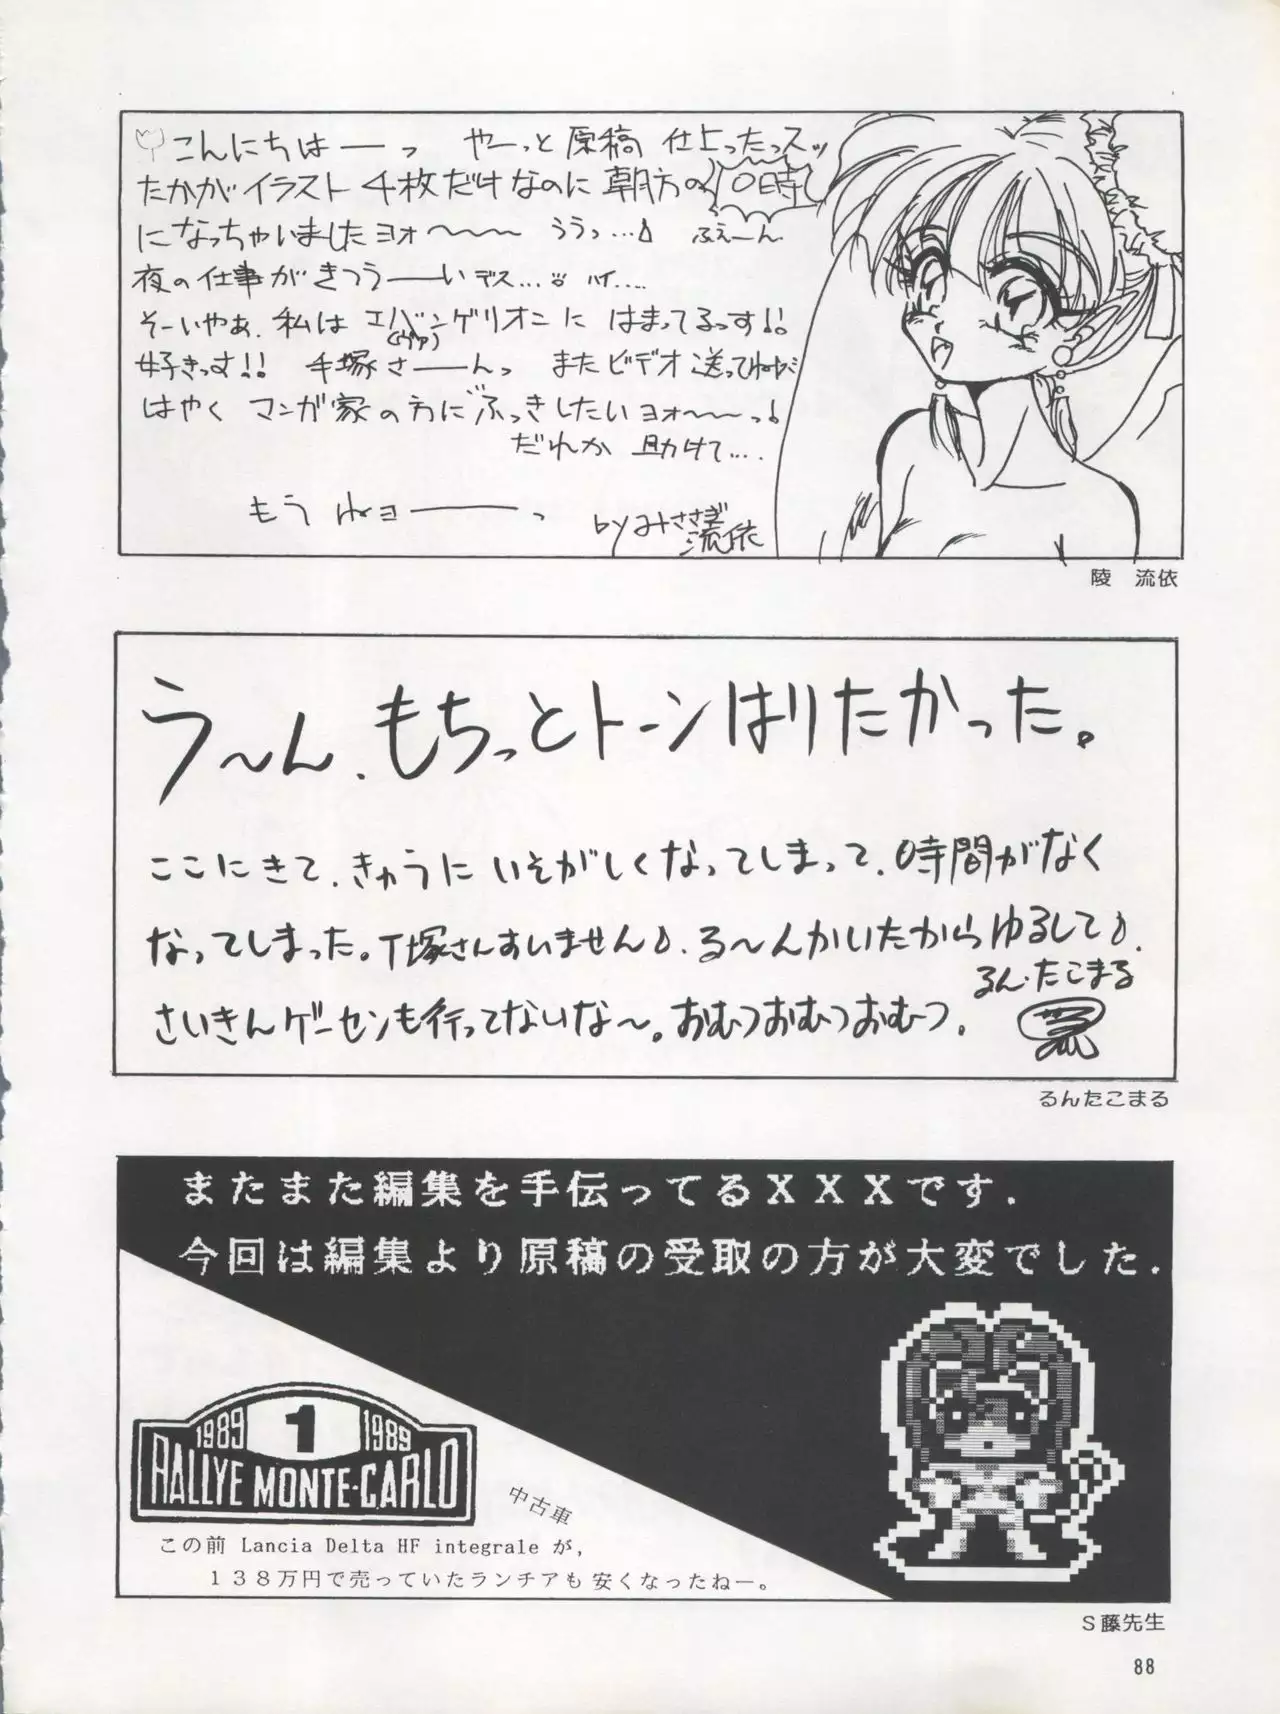 こんにちはーーっ　やーっと原稿仕上ったっスッ
たかがイラスト4枚だけなのに朝方の10時
になっちゃいましたヨォ〜〜〜 ううっ…♪ ふぇーん
夜の仕事がきつうーーいデス… ハイ….
そーいやぁ、私はエバンゲリオンにはまってるっす!!
(ヴァ)
好きっす!! 手塚さーーんっ またビデオ送ってねっ
はやくマンガ家の方にふっきしたいヨォ〜〜っ♪
だれか助けて….
もうねョーーーっ
byみささぎ
流依
陵　流依
う〜ん、もちっとトーンはりたかった。
ここにきて、きゅうにいそがしくなってしまって、時間がなく
なってしまった。T塚さんすいません♪、る〜んかいたからゆるして♪.
るん・たこまる
さいきんゲーセンも行ってないな〜。おむつおむつおむつ.
るんたこまる
またまた編集を手伝ってるＸＸＸです.
今回は編集より原稿の受取の方が大変でした.
1989 1 1989
RALLYE MONTE-CARLO
中古車
この前 Lancia Delta HF integrale が,
１３８万円で売っていたランチアも安くなったねー。
Ｓ藤先生
88